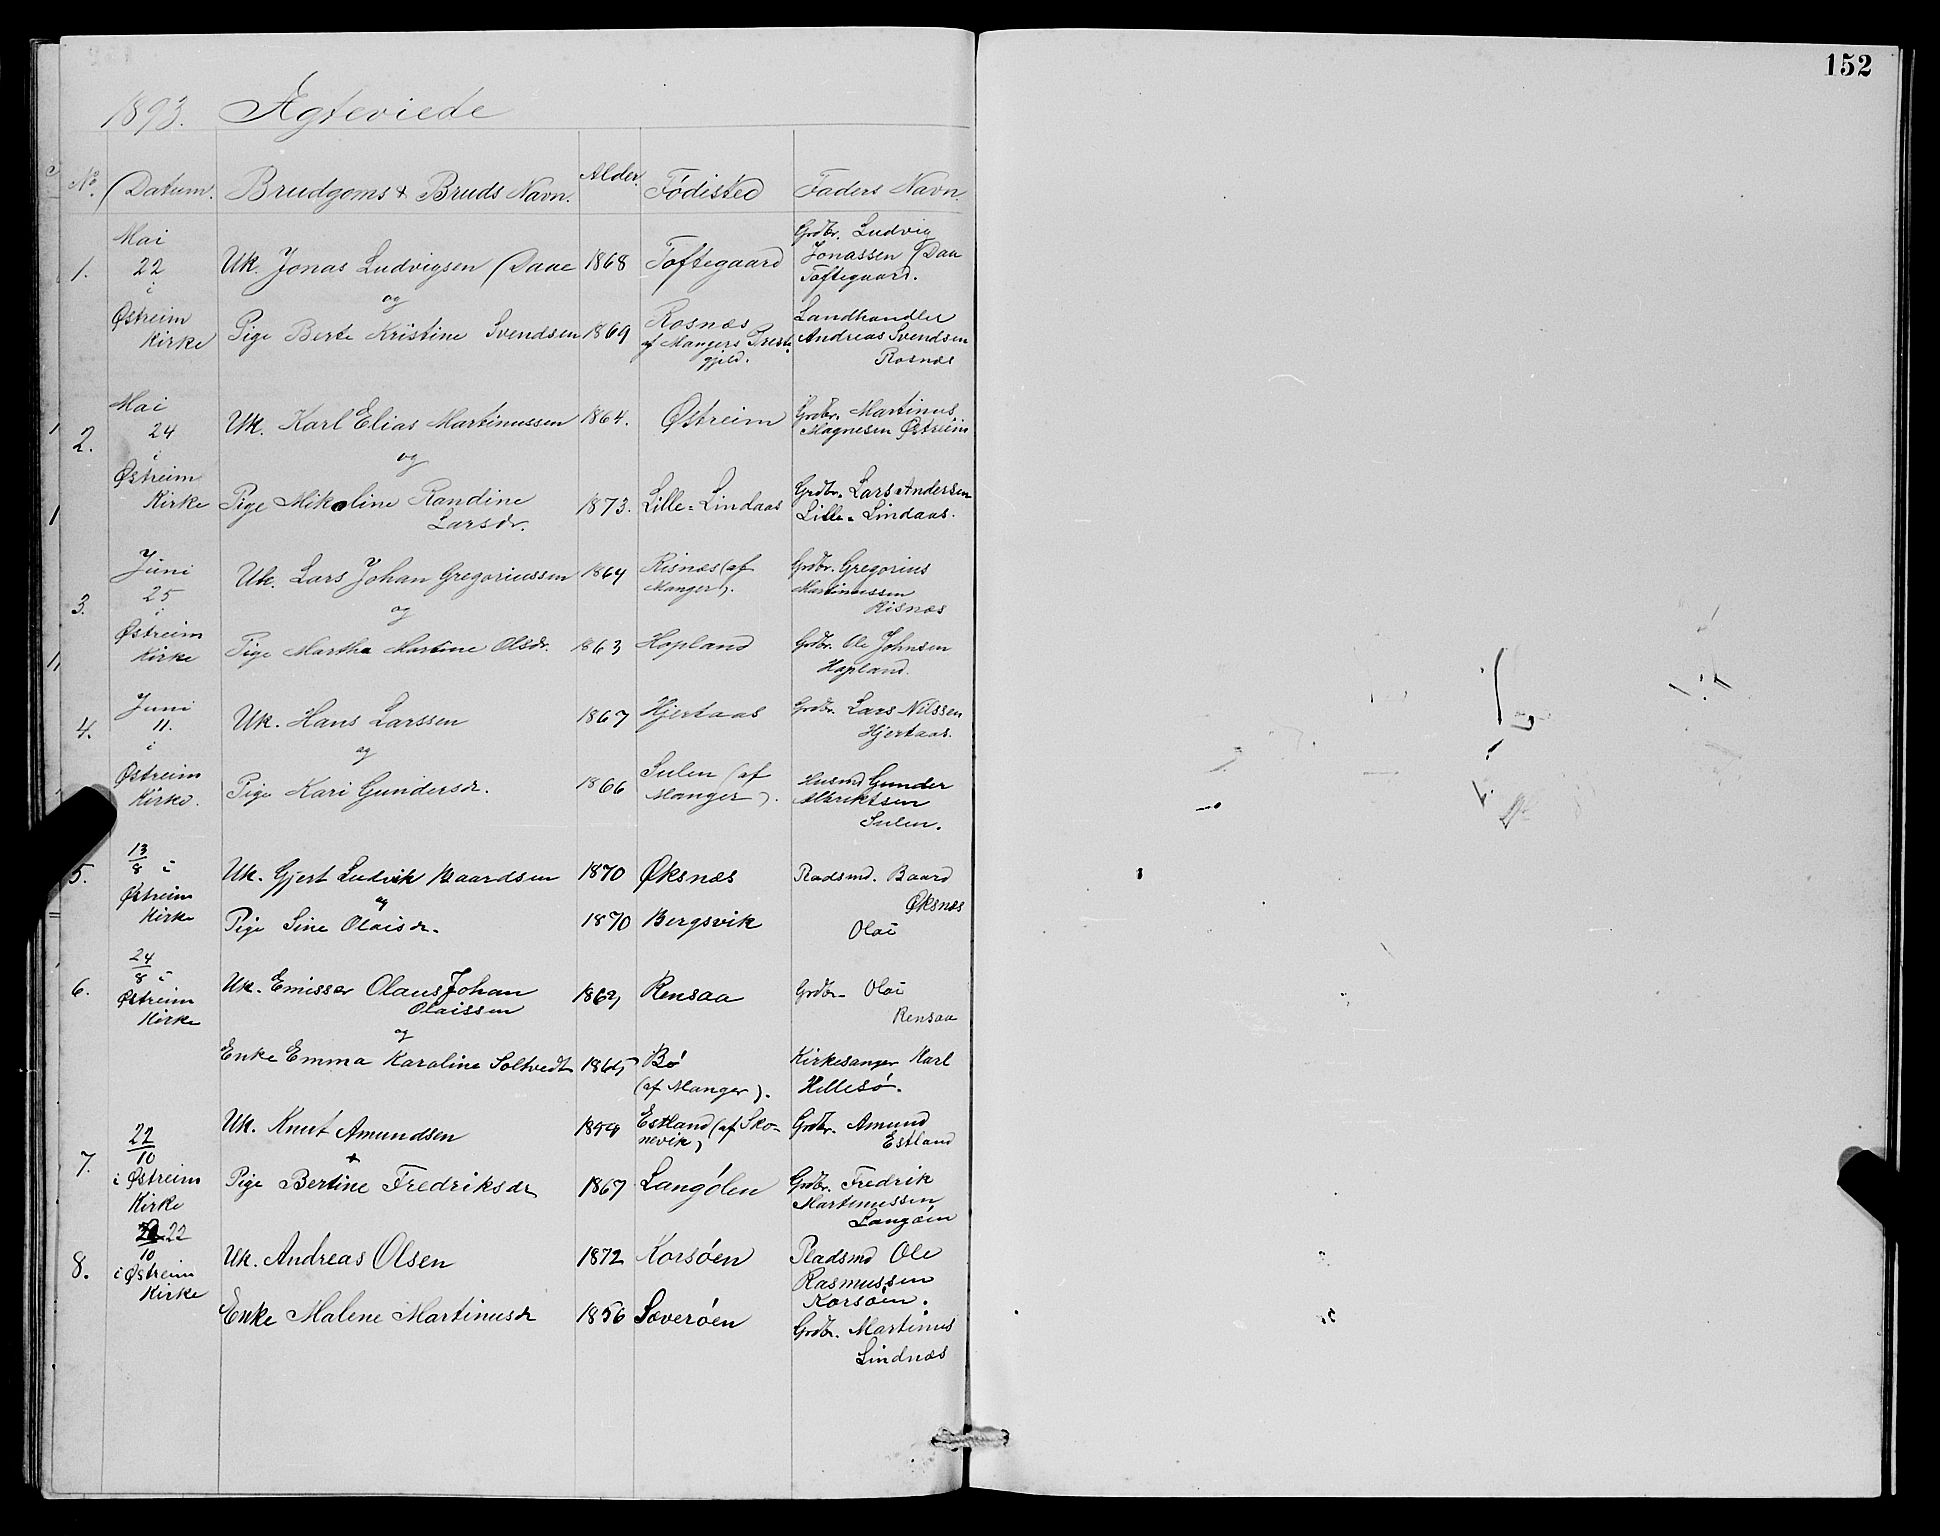 152
1893. Ægteviede
No. Datum. Brudgoms & Bruds Navn. Alder. Födisted Faders Navn.
1. Mai 22 i Østreim Kirke
Uk. Jonas Ludvigsen Daae 1868 Toftegaard Grdbr. Ludvig
Jonassen Daa
Toftegaard.
og
Pige Berte Kristine Svendsen 1869 Rosnæs
af Mangers Præste
gjeld.
Landhandler
Andreas Svendsen
Rosnæs
2. Mai 24 i Østreim Kirke
Uk. Karl Elias Martinussen 1864. Østreim Grdbr. Martinus
Magnesen Østreim
og
Pige Mikoline Randine
Larsdr. 1873. Lille-Lindaas Grdbr. Lars Andersen
Lille-Lindaas.
3. Juni 25 i Østreim Kirke
Uk. Lars Johan Gregoriussen 1864 Risnæs (af
Manger).
Grdbr. Gregorius
Martinussen
Risnæs
og
Pige Martha Martine Olsdr. 1863 Hopland Grdbr. Ole Johnsen
Hopland.
4. Juni 11. i Østreim Kirke.
Uk. Hans Larssen 1867 Hjertaas Grdbr. Lars Nilssen
Hjertaas.
og
Pige Kari Gundersdr. 1866 Sulen (af
Manger).
Husmd Gunder
Albriktsen
Sulen.
5. 13/8 i Østreim Kirke
Uk. Gjert Ludvik Baardsen 1870 Øksnæs Pladsmd. Baard
Øksnæs
og
Pige Sine Olaisdr. 1870 Bergsvik Olai
6. 24/8 i Østreim Kirke
Uk. Emissær Olaus Johan
Olaissen Rensaa Grdbr. Olai
Rensaa
og
Enke Emma Karoline Soltvedt 1865 Bö
(af Manger).
Kirkesanger Karl
Hillesö.
7. 22/10 i Østreim Kirke
Uk. Knut Amundsen Estland (af Skonevik)
Grdbr. Amund
Estland
+
Pige Bertine Fredriksdr 1867 Langölen Grdbr. Fredrik
Martinussen
Langöen
8. 22/10 i Østreim Kirke
Uk. Andreas Olsen 1872 Korsöen Pladsmd Ole
Rasmussen
Korsöen.
Enke Malene Martinusdr 1856 Sæveröen Grdbr. Martinus
Lindnæs